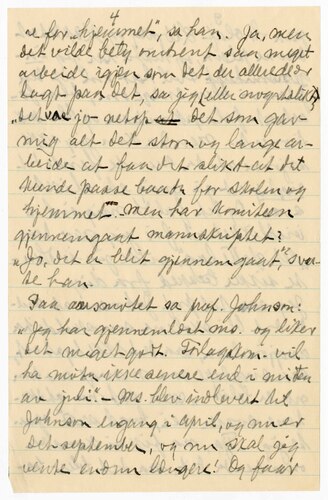 4
se for „hjemmet", sa han. Ja, men
det vilde bety omtrent saa meget
arbeide igjen som det du allerede har
lagt paa det, sa jeg (eller noget slikt)
„Det var jo netop det som gav
mig alt det store og lange ar-
beide at faa det slikt at det
kunde passe baade for skolen og
hjemmet". Men har komiteen
gjennemgaat manuskriptet?
„Jo, det er blit gjennemgaat", svar-
te han.
Paa aarsmøtet sa prof. Johnson:
„Jeg har gjennemlæst ms. og liker
det meget godt. Forlagskom. vil
ha møte ikke senere end i midten
av juli". – Ms. blev indlevert til
Johnson engang i april, og nu er
det september, og nu skal jeg
vente endnu længere! Og faar